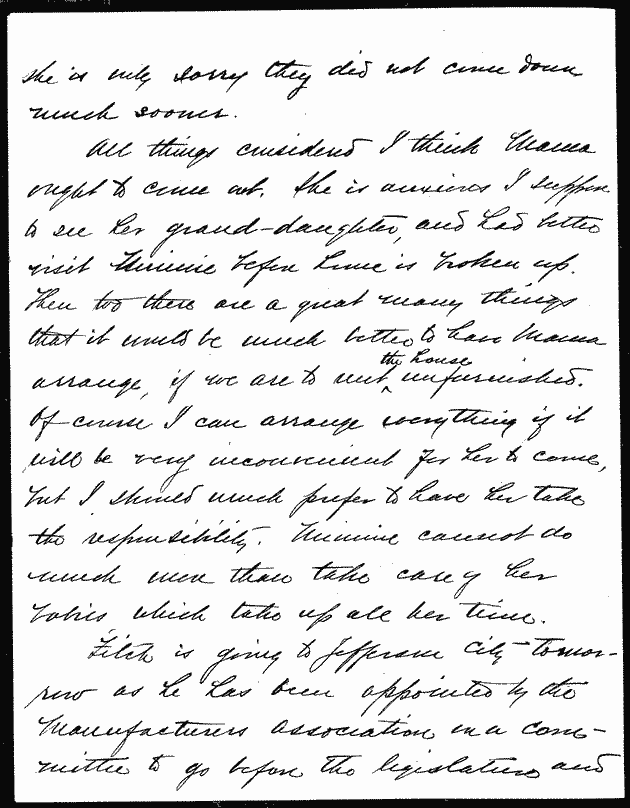 she is only sorry they did not come down
much sooner.
All things considered I think Mama
ought to come out. She is anxious I suppose
to see her grand-daughter, and had better
visit Minnie before home is broken up.
Then too there are a great many things
that it would be much better to have Mama
arrange, if we are to rent the house unfurnished.
Of course I can arrange everything if it
will be very inconvenient for her to come,
but I should much prefer to have her take
the responsibility. Minnie cannot do
much more than take care of her
babies which take up all her time.
Fitch is going to Jefferson City tomor-
row as he has been appointed by the
Manufacturers Association on a com-
mittee to go before the legislature and